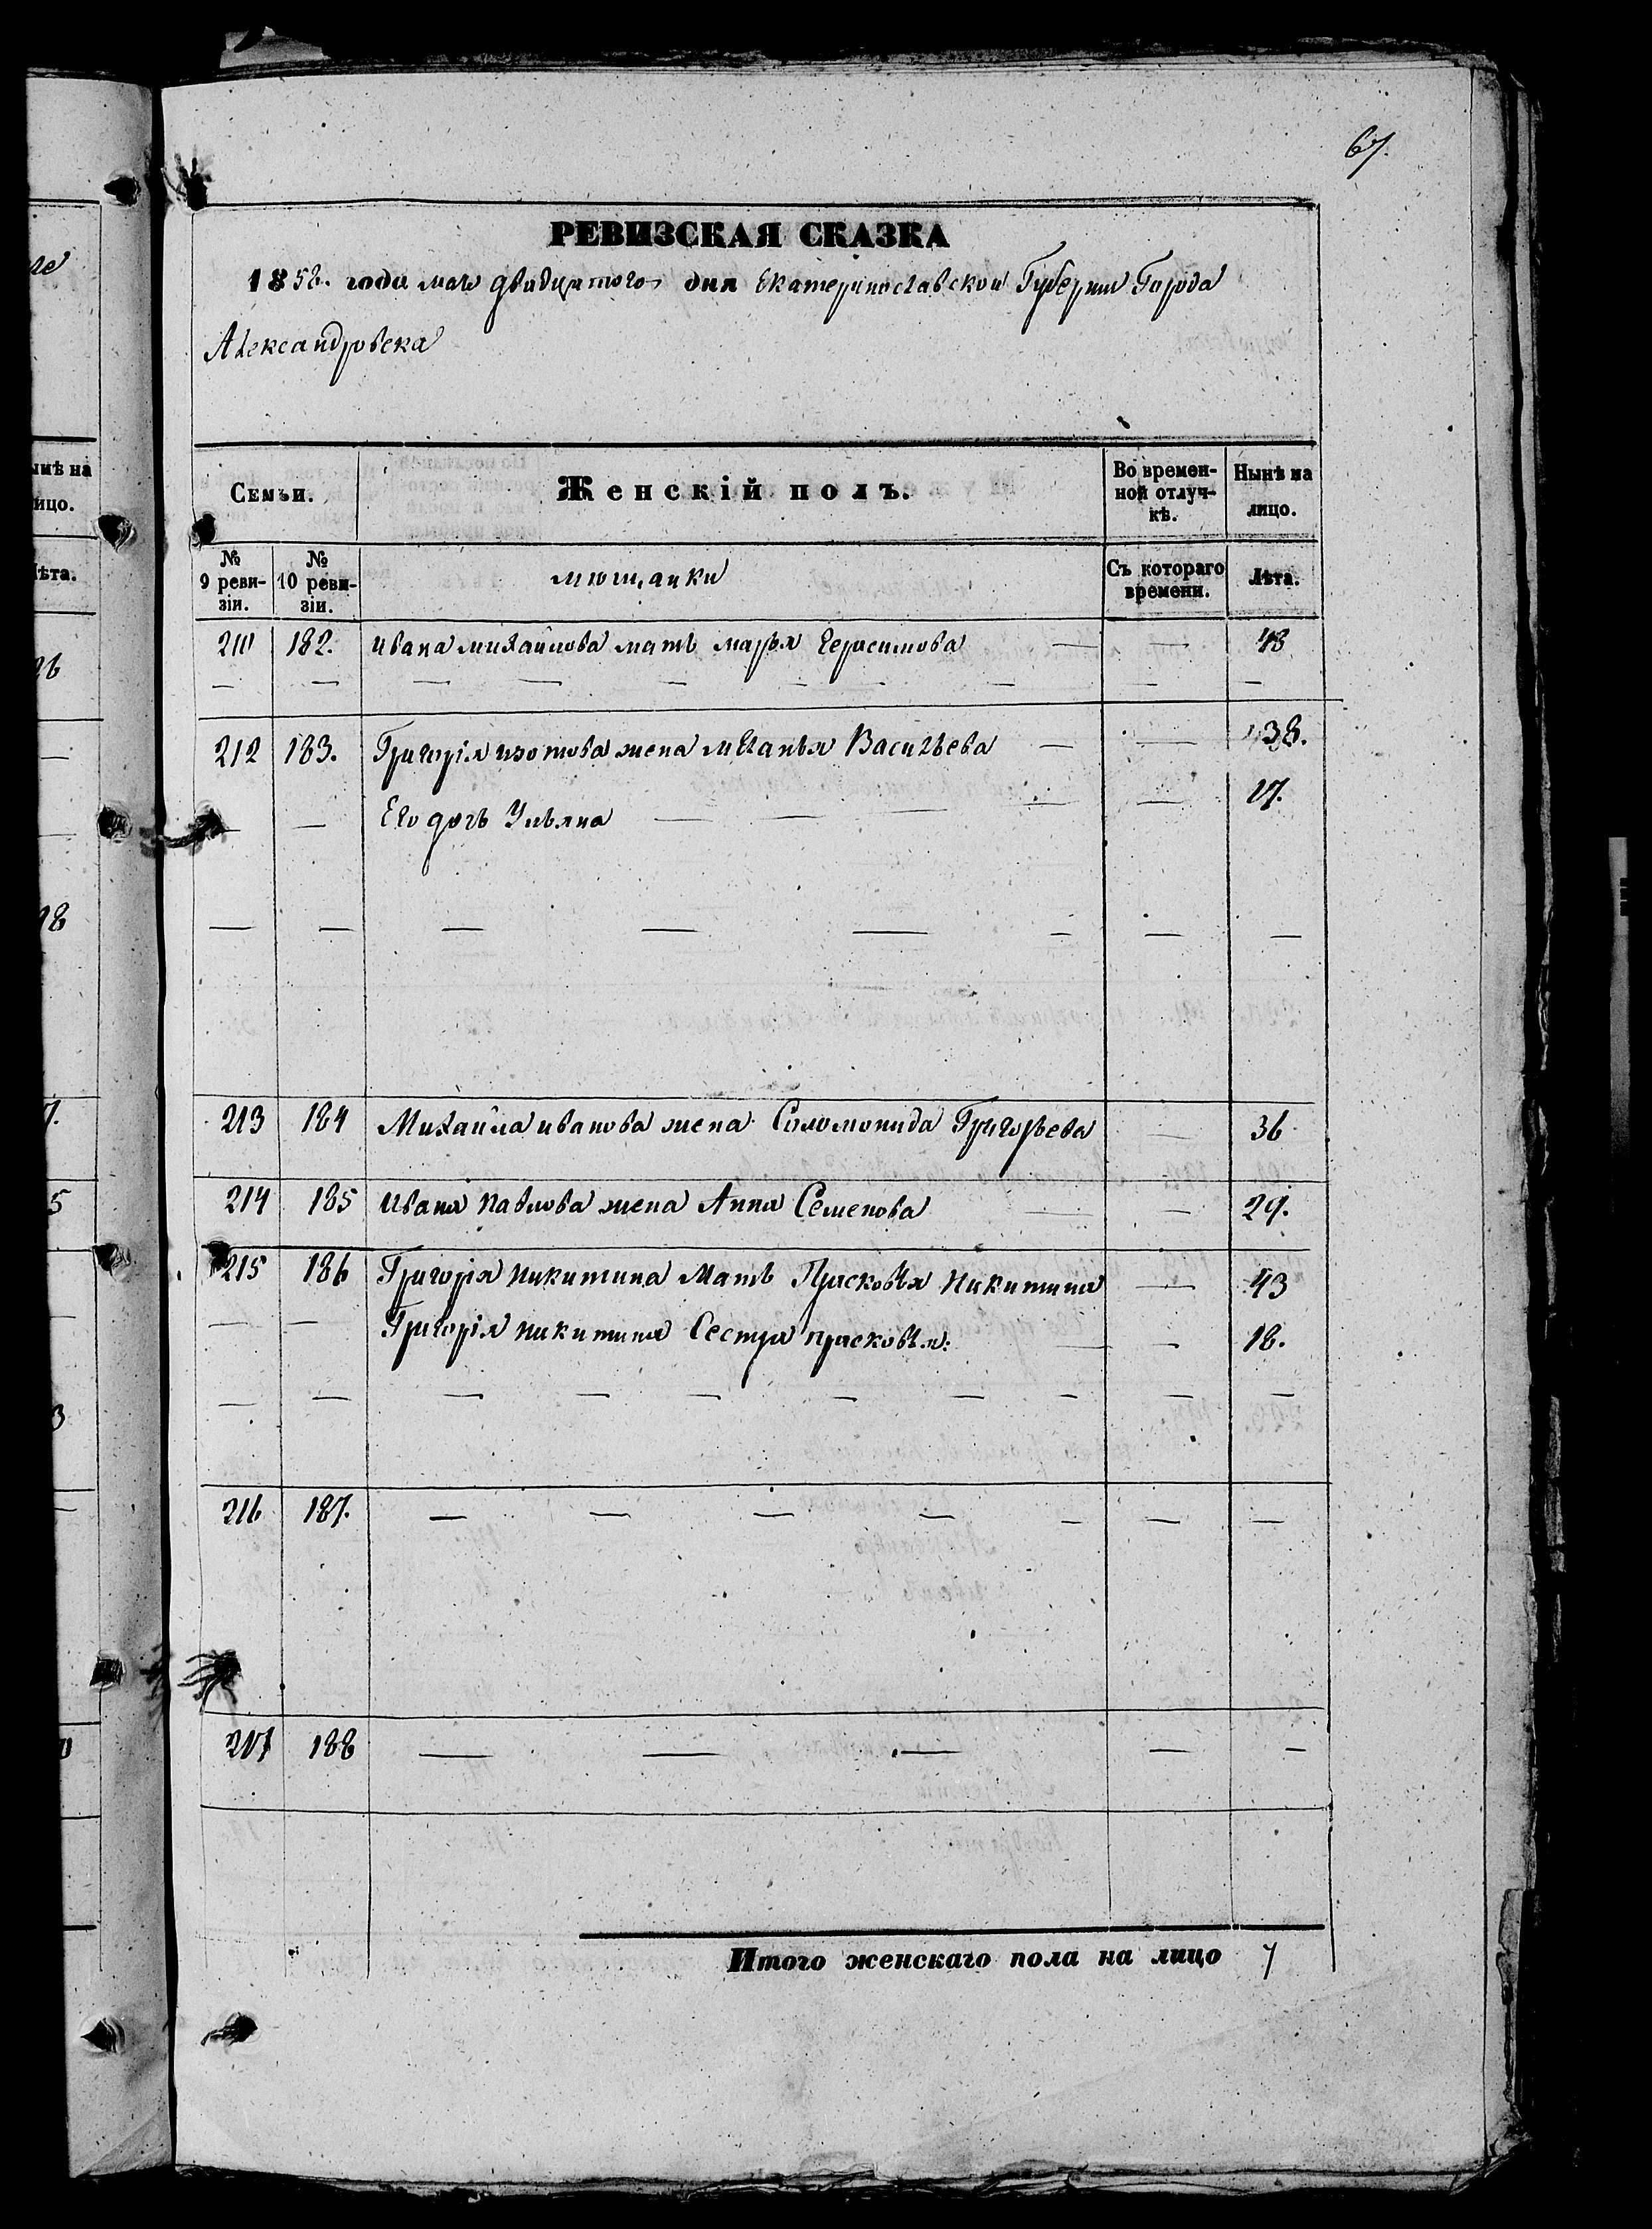 67.
РЕВИЗСКАЯ СКАЗКА
1858. года мая двадцятого дня Екатеринославской Губернии Города
Александровска
Семьи.
Женскій полъ.
Во времен-
ной отлуч-
кѣ.
Нынѣ на
лицо.
№
9 реви-
зіи.
№
10 реви-
зіи.
мющанки
Съ котораго
времени.
Лѣта.
211 182. Ивана Михайлова мать марья Герасимова — — 48
— — — — — — — — — —
212 183. Григорія изотова жена меланья Васильева — — 38.
— — Его дочь Ульяна — — — — — 17.
— — — — — — — —
213 184 Михайла иванова жена Соломонида Григорьева — 36
214 185 Ивана Павлова жена Анна Семенова — — 29.
215 186 Григорія Никитина Мать Прасковья Никитина — 43
— — Григорія никитина Сестра прасковья: — — 18.
— — — — — — — — — —
216 187. — — — — — — —
217 188 — — — — —
Итого женскаго пола на лицо 7
ынѣ на
ицо.
ѣта.